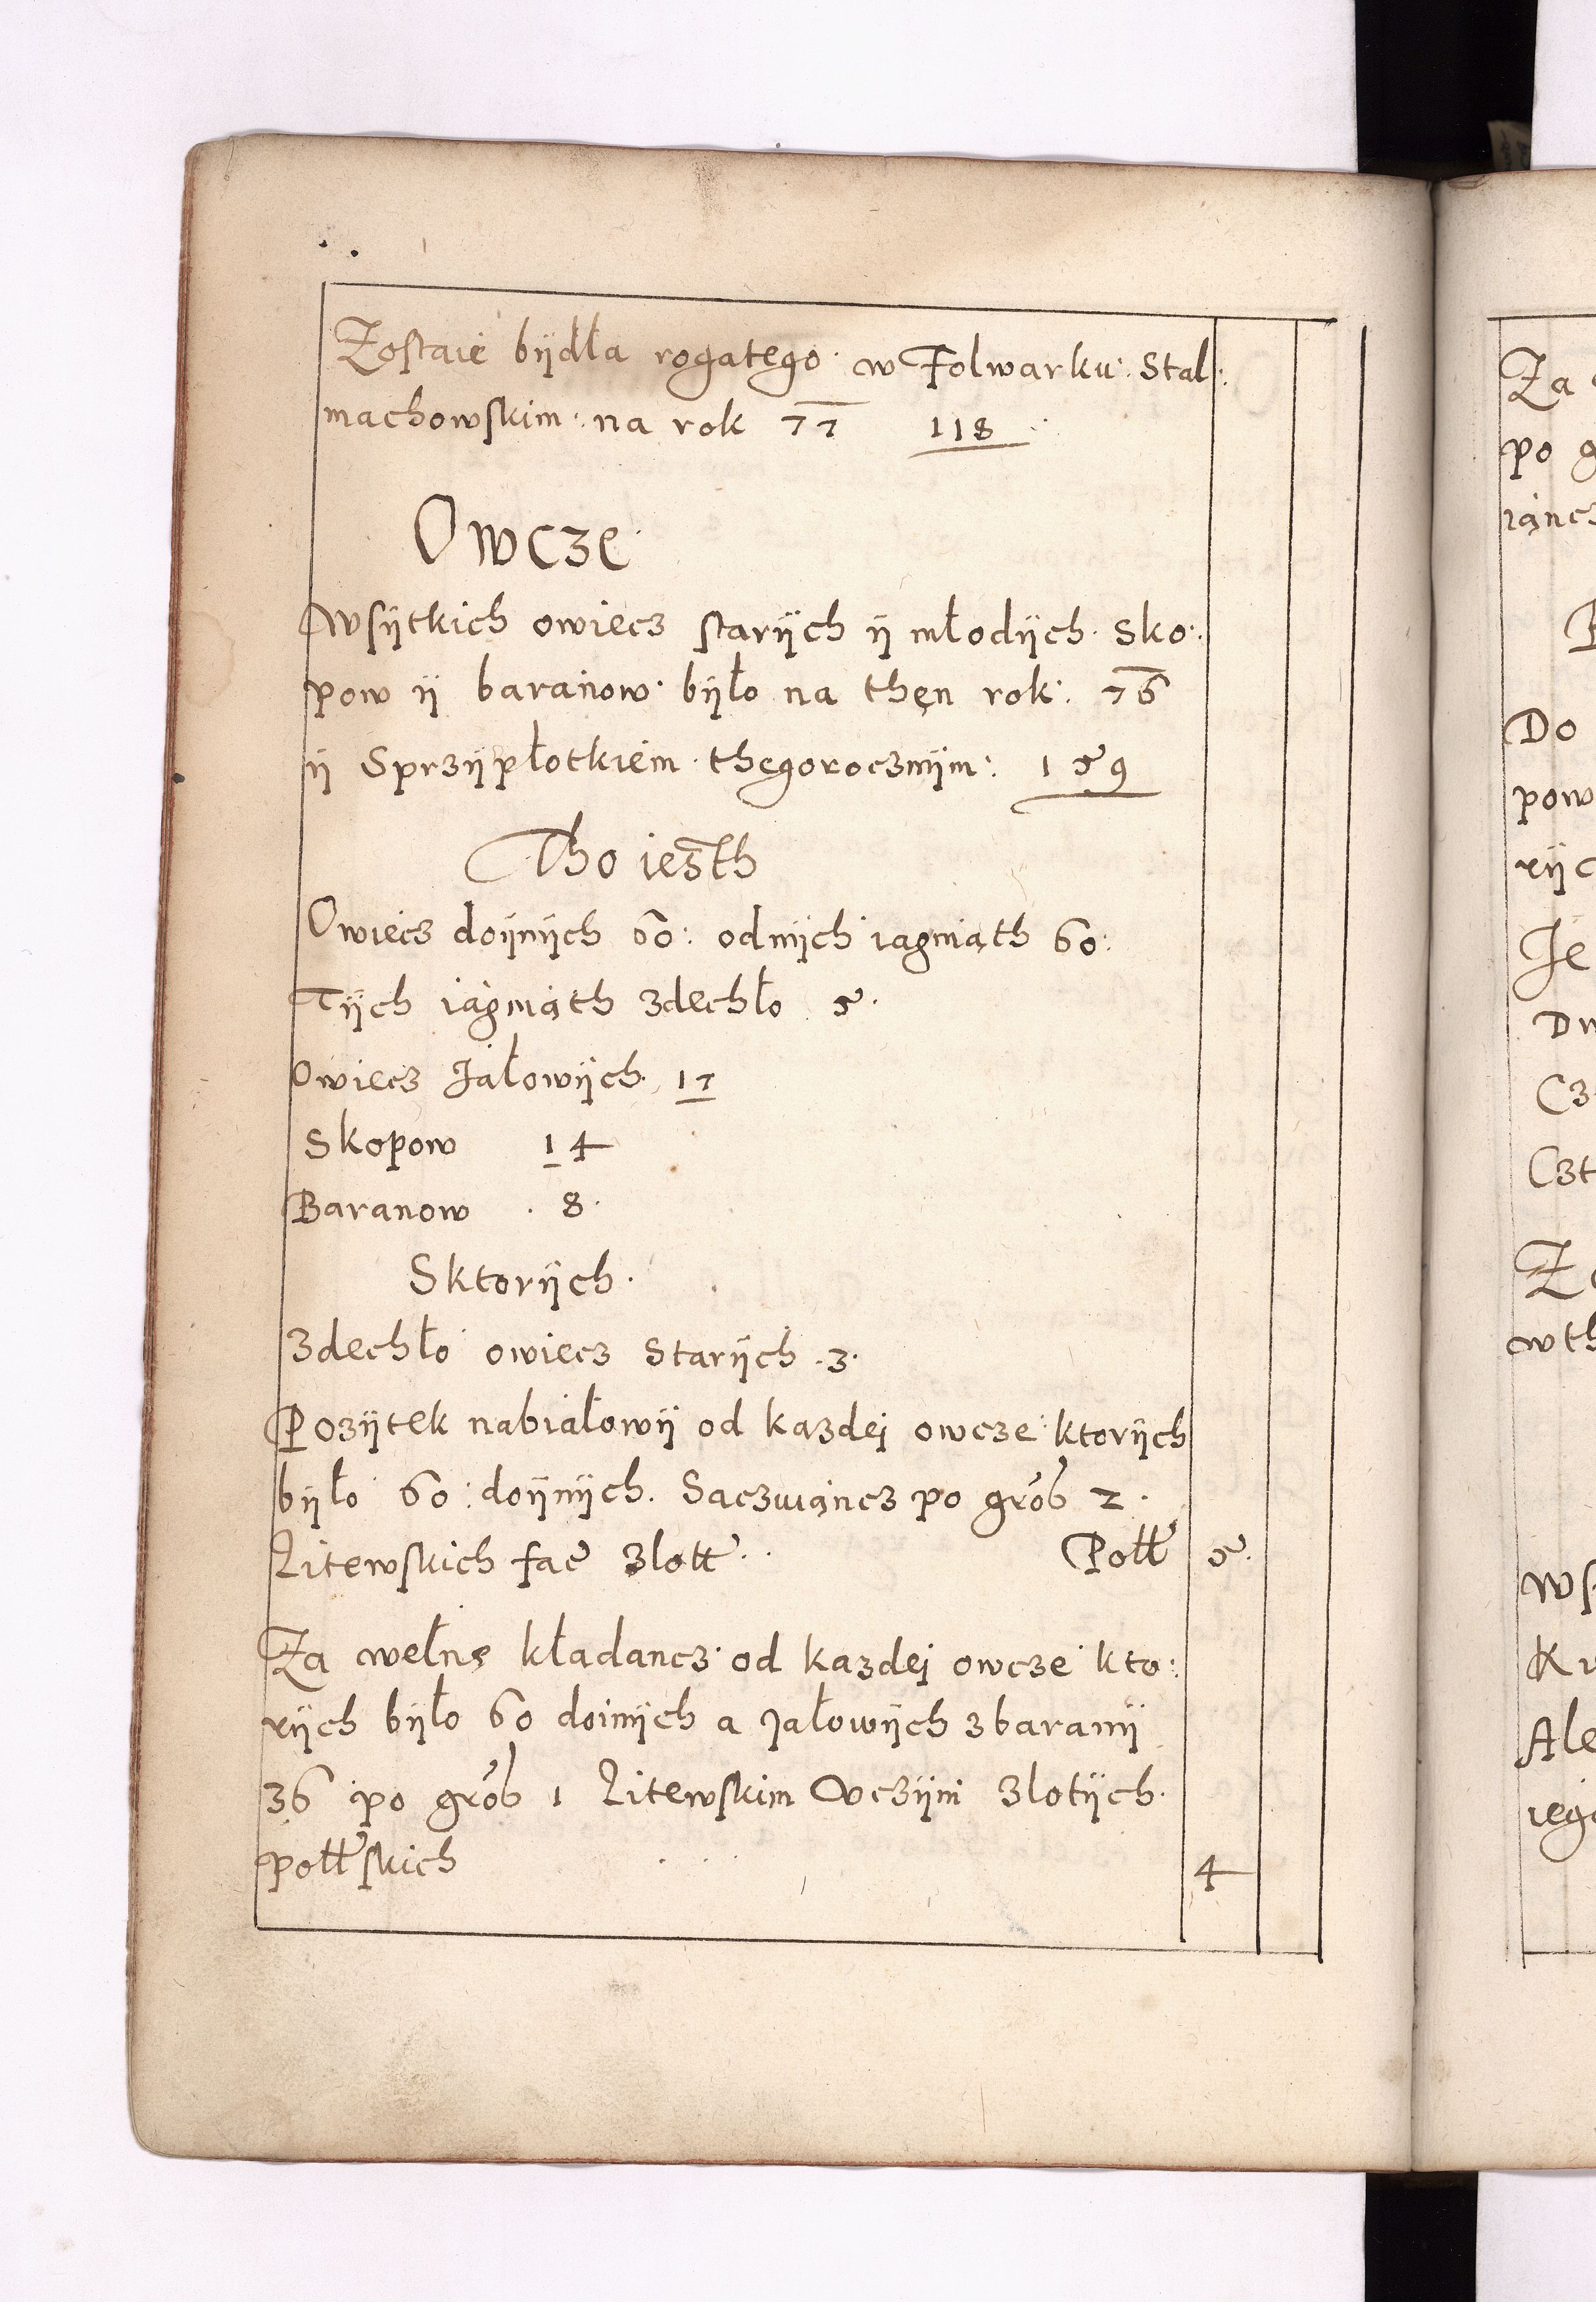 Zostaie bÿdła rogatego w Folwarku Stal:
machowskim na rok 77 118
Owcze
Wsÿtkich owiecz starÿch ÿ młodÿch sko:
pow ÿ baranow bÿło na thęn rok 76
ÿ Sprzÿpłotkiem thegorocznÿm: 159
Tho iesth
Owiecz doÿnÿch 60: odnÿch iagniąth 60:
Tÿch iagniąth zdechło 5.
Owiecz Jałowÿch 17
Skopow 14
Baranow 8.
Sktorÿch.
Zdechło owiecz Starÿch .3.
Pozÿtek nabiałowÿ od kazdej owcze ktorÿch
bÿło 60: doÿnÿch. Saczuiącz po grob 2.
Litewskich fac zlott Poltt 5.
Za wełnę kładancz od kazdej owcze kto:
rÿch bÿło 60 doinÿch a jałowÿch zbaranÿ
36 po grob 1 Litewskim Vczÿni zlotÿch
polttskich 4
Za
po
iąncz
Do
pow
rÿc
Je
Dw
Cz
Czt
Zo
wth
Ws
Ku
Ale
iego